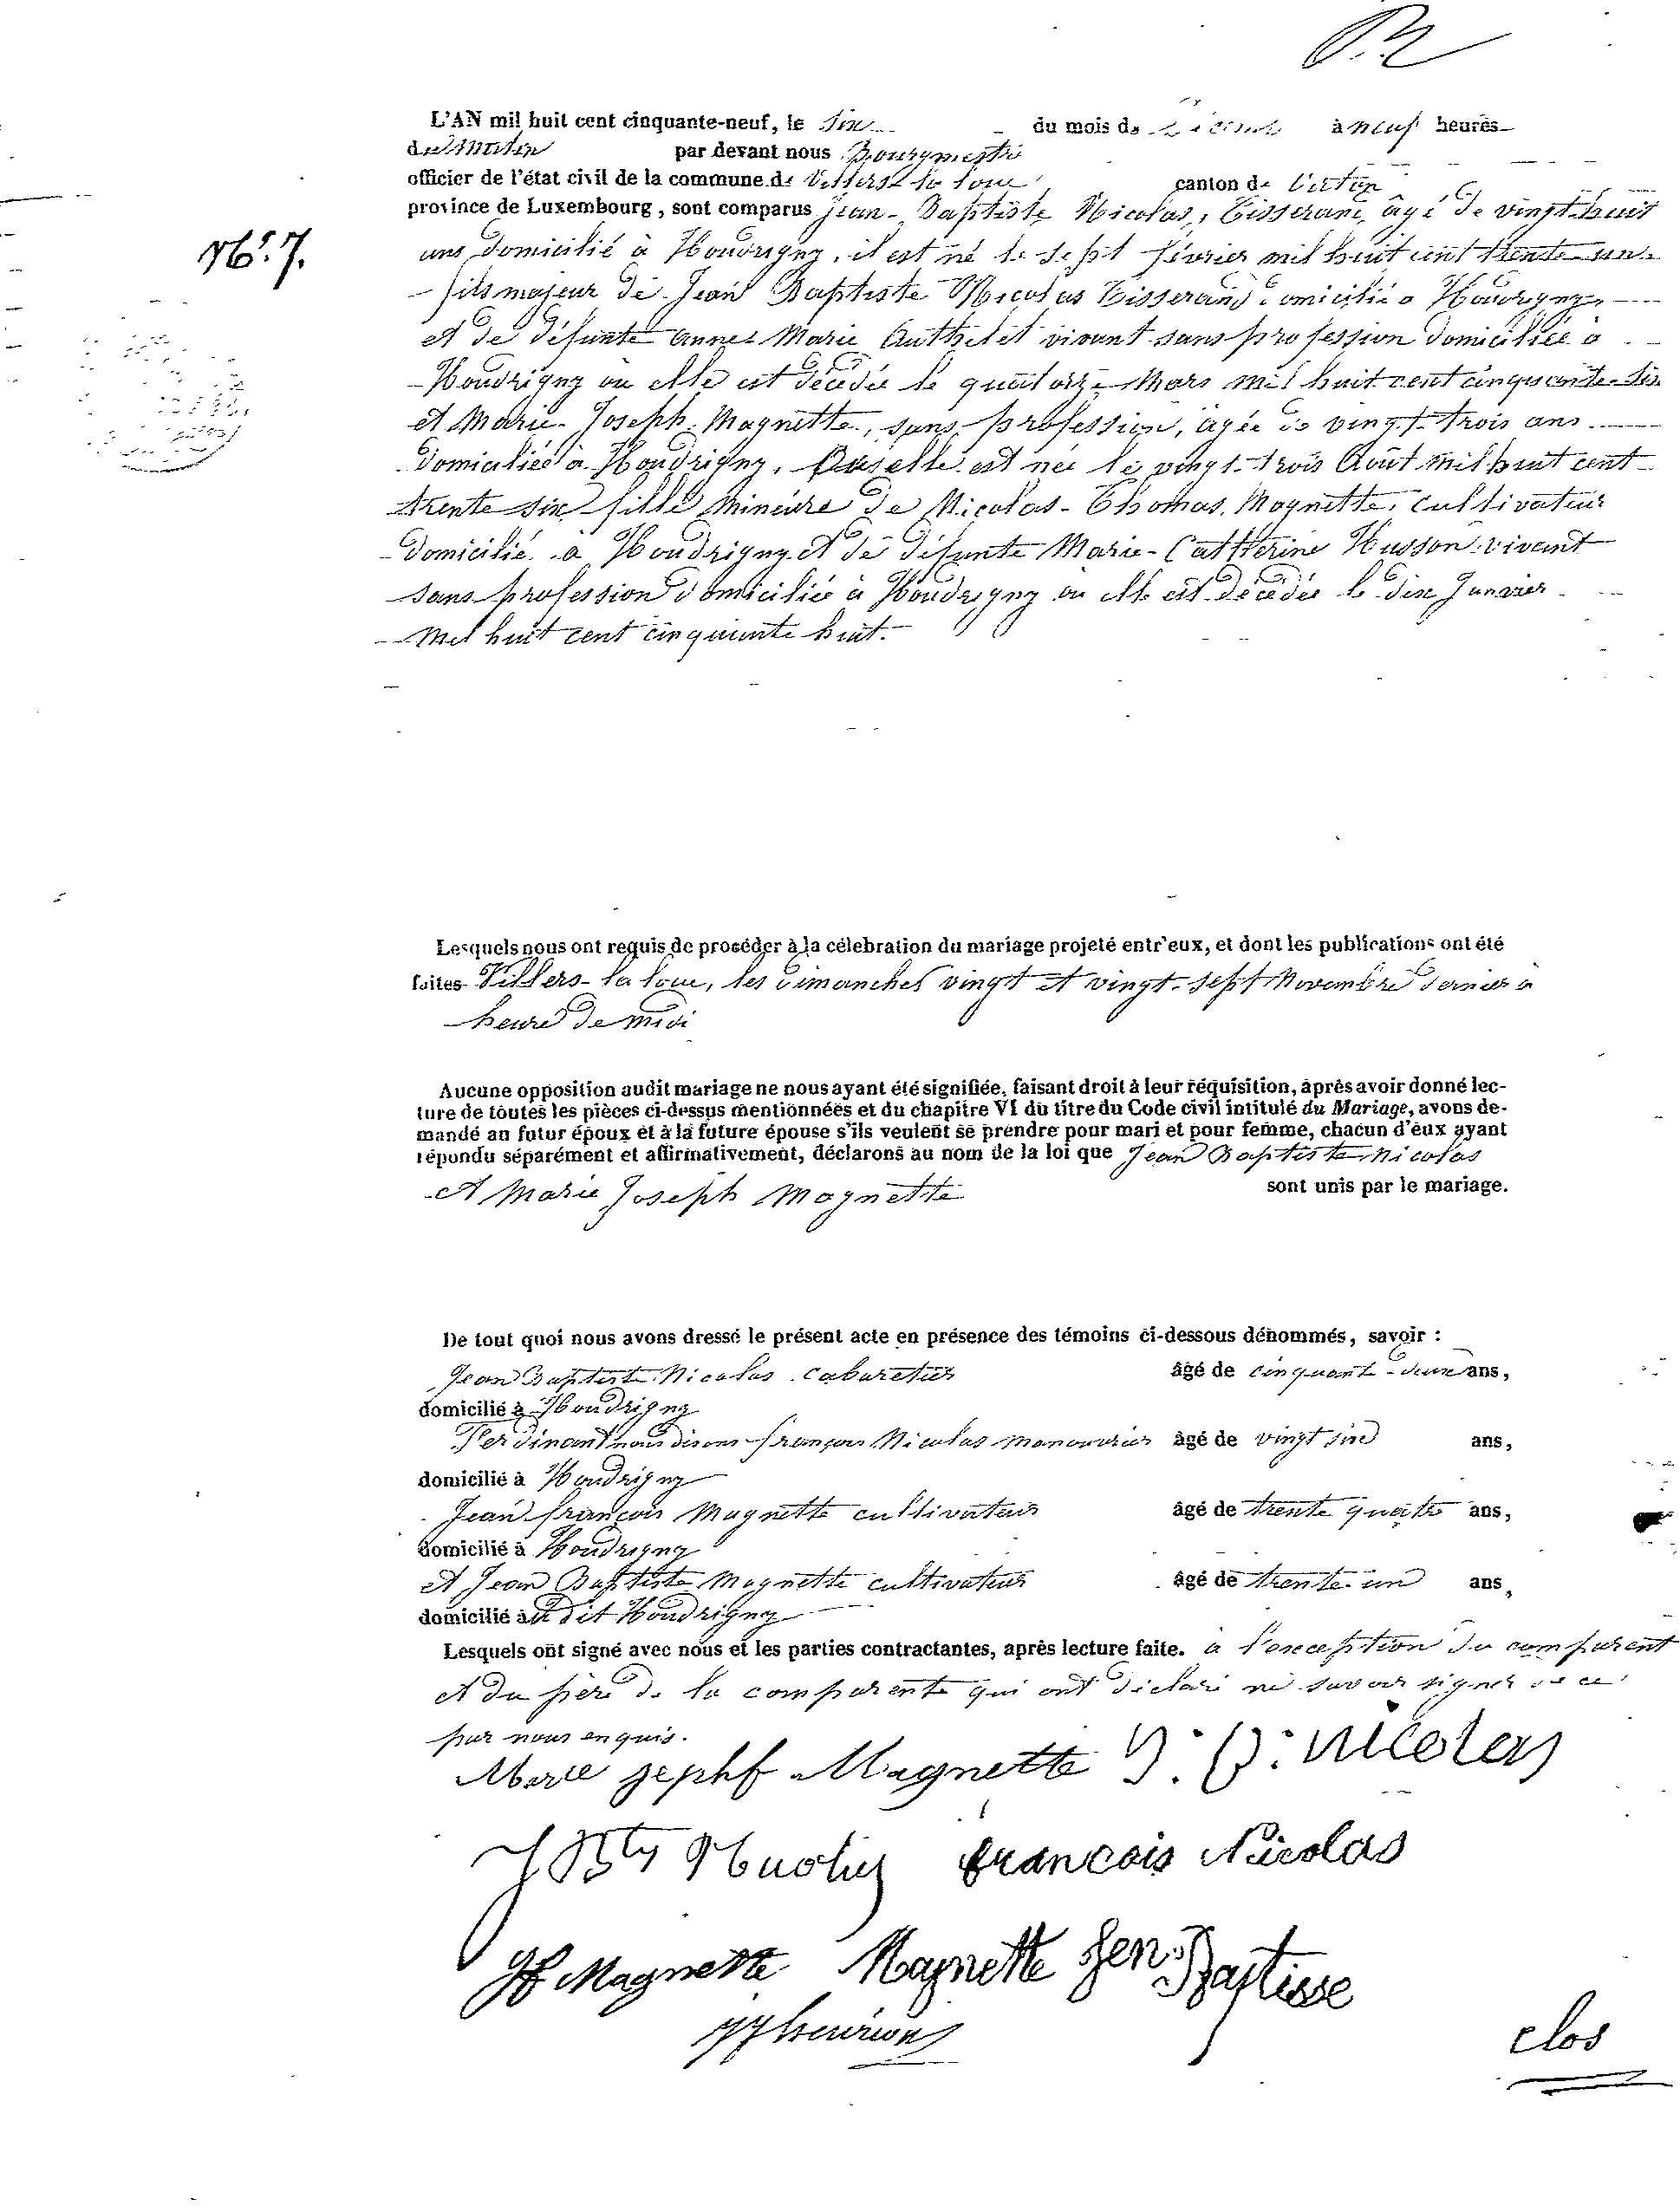 L'AN mil huit cent cinquante-neuf, le six du mois de Décembre à neuf heures
du Matin par devant nous Bourgmestre
officier de l'état civil de la commune de Villers-la-loue, canton de Virton
province de Luxembourg, sont comparus Jean-Baptiste Nicolas, Tisserand, âgé de vingt-huit
N° 7.
ans, domicilié à Houdrigny, il est né le sept février mil huit cent trente-un
fils majeur de Jean Baptiste Nicolas Tisserand domicilié à Houdrigny
et de défunte Anne Marie Authelet vivant sans profession domiciliée à
Houdrigny où elle est décédée le quatorze Mars mil huit cent cinquante-six
et Marie-Joseph Magnette, sans profession, âgée de vingt-trois ans
domiciliée à Houdrigny, elle est née le vingt-trois Août mil huit cent
trente six fille mineure de Nicolas-Thomas Magnette, cultivateur
domicilié à Houdrigny et de défunte Marie-Catherine Husson vivant
sans profession domiciliée à Houdrigny où elle est décédée le dix Janvier
mil huit cent cinquante huit.
Lesquels nous ont requis de procéder à la célebration du mariage projeté entr'eux, et dont les publications ont été
faites Villers-la loue, les dimanches vingt et vingt-sept Novembre dernier à
heure de midi
Aucune opposition audit mariage ne nous ayant été signifiée, faisant droit à leur réquisition, après avoir donné lec-
ture de toutes les pièces ci-dessus mentionnées et du chapitre VI du titre du Code civil intitulé du Mariage, avons de-
mandé au futur époux et à la future épouse s'ils veulent se prendre pour mari et pour femme, chacun d'eux ayant
répondu séparément et affirmativement, déclarons au nom de la loi que Jean Baptiste Nicolas
et Marie Joseph Magnette sont unis par le mariage.
De tout quoi nous avons dressé le présent acte en présence des témoins ci-dessous dénommés, savoir :
Jean Baptiste Nicolas cabaretier âgé de cinquante-deux ans,
domicilié à Houdrigny
Ferdinant nous disons françois Nicolas manouvrier âgé de vingt six ans,
domicilié à Houdrigny
Jean françois Magnette cultivateur âgé de trente quatre ans,
domicilié à Houdrigny
et Jean Baptiste Magnette cultivateur âgé de trente-un ans,
domicilié à dit Houdrigny
Lesquels ont signé avec nous et les parties contractantes, après lecture faite. à l'exception du comparent
et du père de la comparente qui ont déclaré ne savoir signer de ce
par nous enquis.
Marie jephf Magnette J: B: Nicolas
francois Nicolas
Jf Magnette Magnette Jen Baptisse
clos